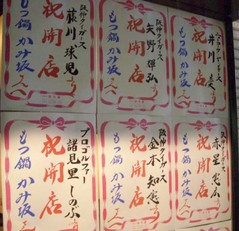 タイガース
井川
祝開店
もつ鍋 かみ坂
阪神タイガース
矢野輝弘
祝開店
もつ鍋 かみ坂
阪神タイガース
藤川球児
祝開店
もつ鍋 かみ坂
阪神タイガース
赤星憲広
祝開店
もつ鍋 かみ坂
阪神タイガース
金本知憲
祝開店
もつ鍋 かみ坂
プロゴルファー
諸見里しのぶ
祝開店
もつ鍋 かみ坂